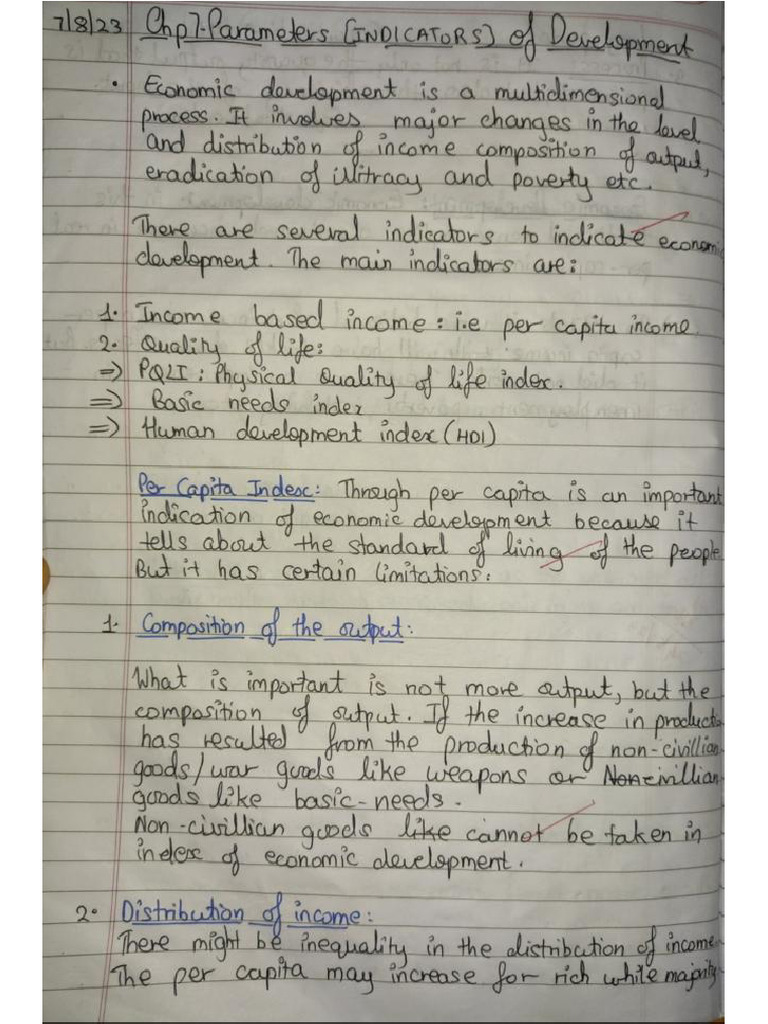 7/8/23 Chp7-Parameters [INDICATORS] of Development
• Economic development is a multidimensional
process. It involves major changes in the level
and distribution of income composition of output,
eradication of illitracy and poverty etc.
There are several indicators to indicate economic
development. The main indicators are:
1. Income based income: i.e per capita income
2. Quality of life:
⇒ PQLI: Physical Quality of life index.
⇒ Basic needs index
⇒ Human development index (HDI)
Per Capita Index: Through per capita is an important
indication of economic development because it
tells about the standard of living of the people
But it has certain limitations:
1. Composition of the output:
What is important is not more output, but the
composition of output. If the increase in producti
has resulted from the production of non-civillian
goods/war goods like weapons or Non civillian
goods like basic-needs.
Non-civillian goods like cannot be taken in
index of economic development.
2. Distribution of income:
There might be inequality in the distribution of income
The per capita may increase for rich while majority